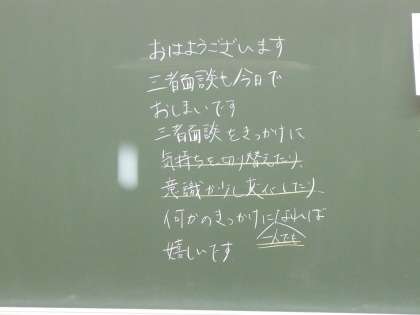 おはようございます
三者面談も今日で
おしまいです
三者面談をきっかけに
気持ちを切り替えたり、
意識が少し変化したり、
何かのきっかけになれば
一人でも
嬉しいです